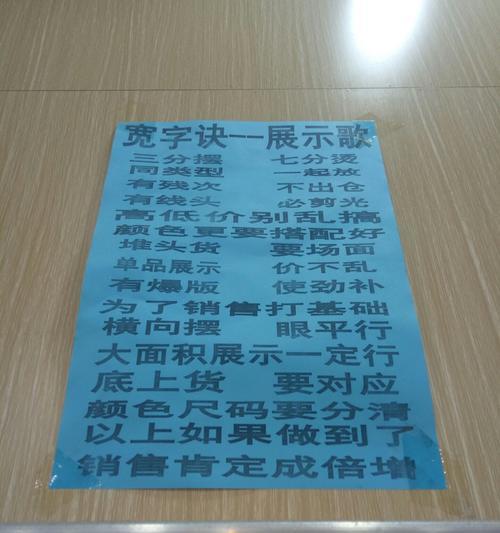 宽字诀一一展示歌
三分摆 七分烫
同类型 一起放
有残次 不出仓
有线头 必剪光
高低价别乱搞
颜色更要搭配好
堆头货 要场面
单品展示 价不乱
有爆版 使劲补
为了销售打基础
横向摆 眼平行
大面积展示一定行
底上货 要对应
颜色尺码要分清
以上如果做到了
销售肯定成倍增